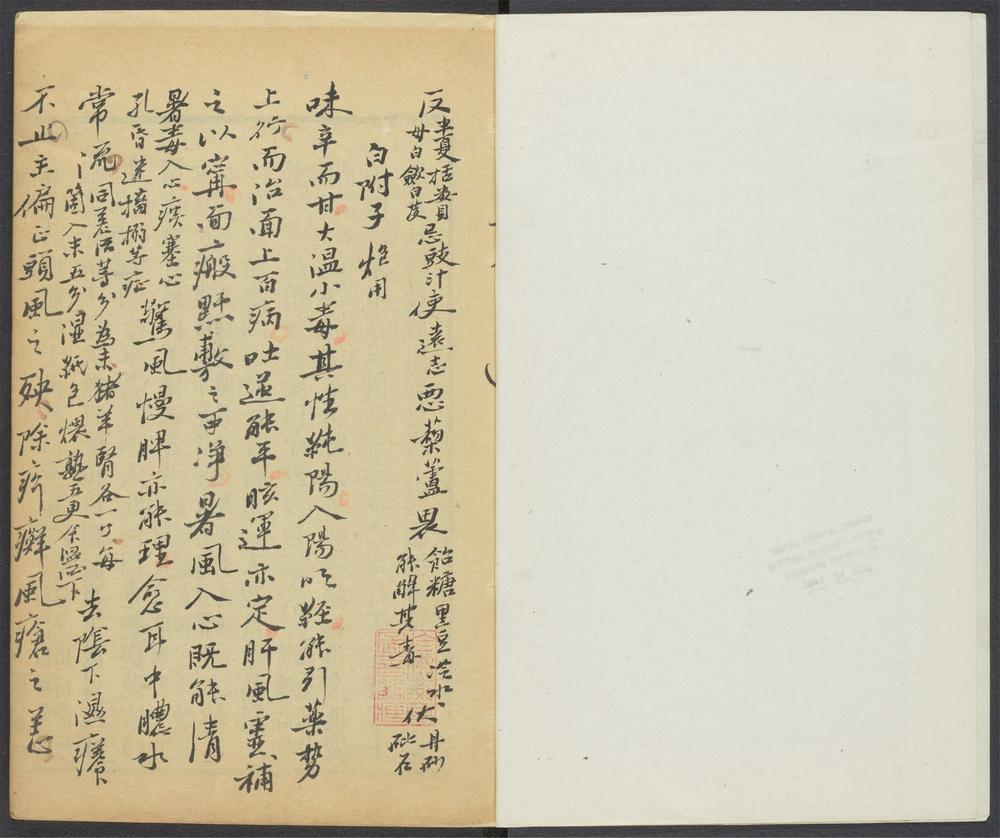 反半夏栝蔞貝母白蘞白芨忌豉汁使遠志惡藜蘆畏飴糖黑豆冷水能解其毒伏丹砂砒石
白附子炮用
味辛而甘大溫小毒其性純陽入陽明經能引藥勢
上行而治面上百病吐逆能平眩運亦定肝風虛補
之以寧面瘢䵟敷之可淨暑風入心既能清
暑毒入心痰塞心孔昏迷搐搦等症驚風慢脾亦能理愈耳中膿水
常流同羌活等分為末猪羊腎各一个每个箇入末五分濕紙包煨熟五更食溫下去陰下濕癢
不止主偏正頭風之殃除疥癬風瘡之恙